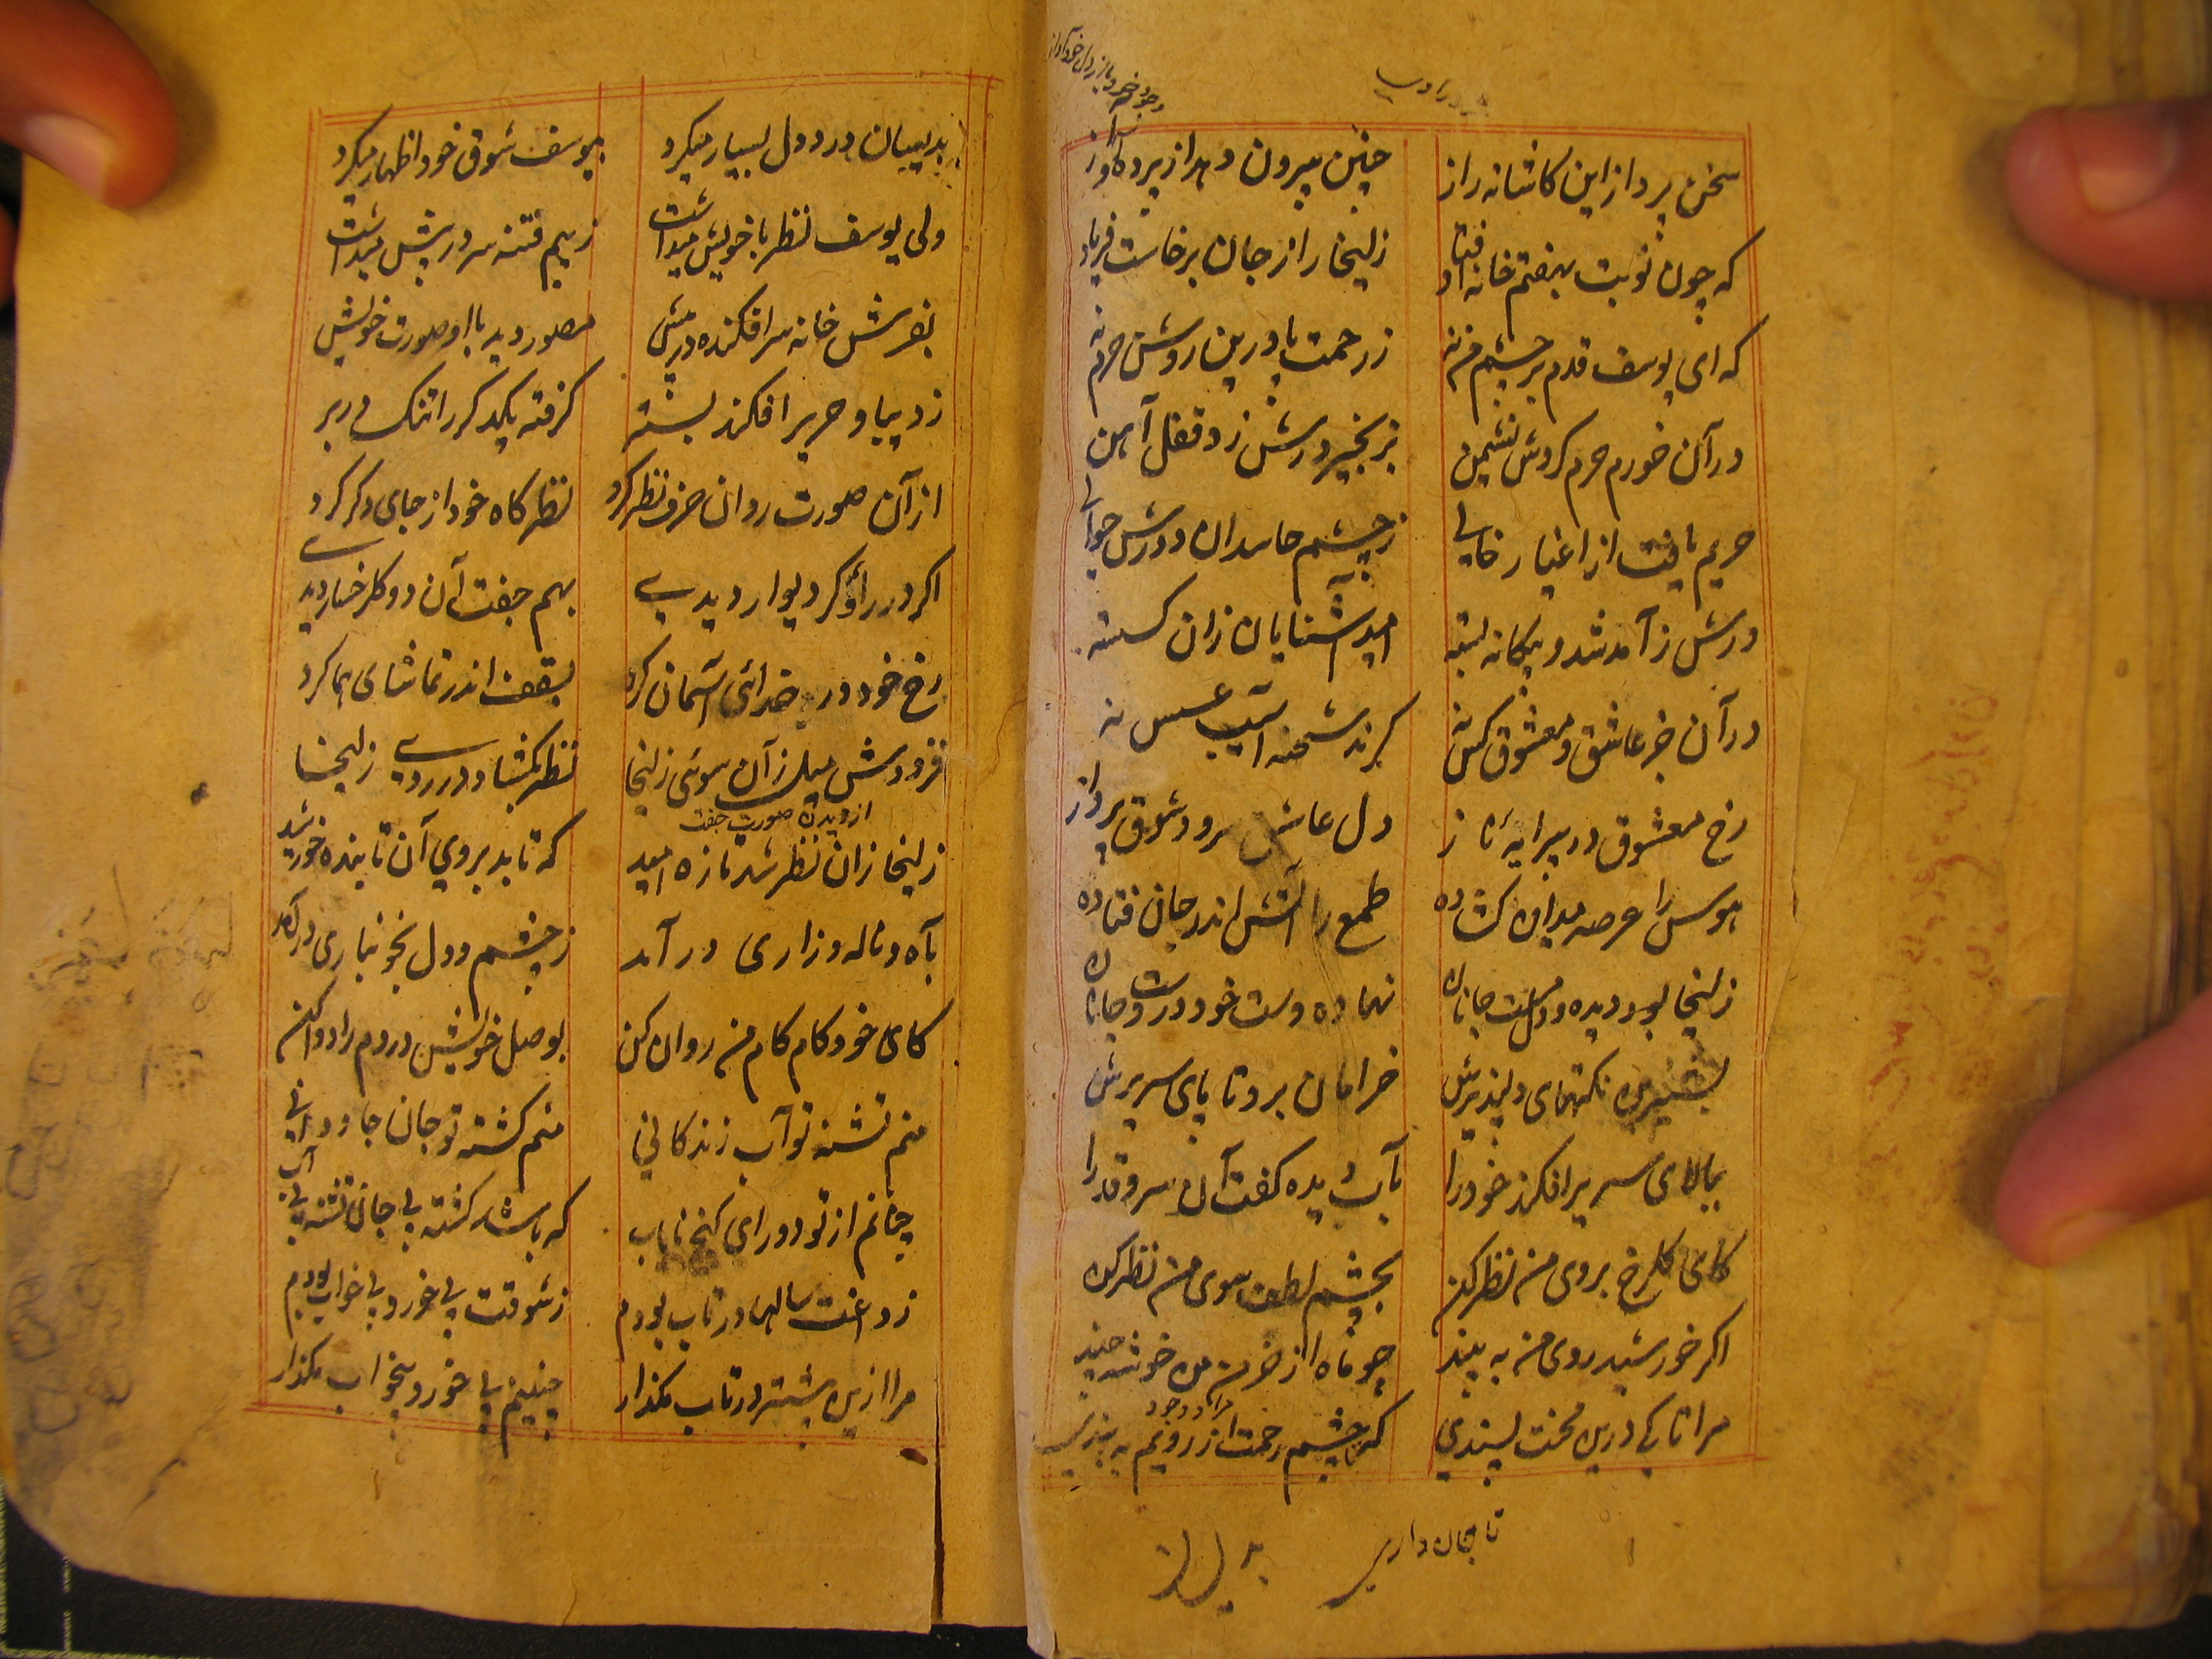 سخن پرداز این کاشانه راز چنین بیرون دهد از پرده آواز
که چون نوبت بهفتم خانه افتاد زلیخا را ز جان برخاست فریاد
که ای یوسف قدم بر چشم من نه ز رحمت پا درین روشن حرم نه
در آن خورم حرم کردش نشیمن بزنجیر درش زد قفل آهن
حریم یافت از اغیار خالی ز چشم حاسدان دورش حوالی
درش ز آمد شد و بیگانه بسته امید آشنایان زان گسسته
در آن جز عاشق و معشوق کس نه گزند شحنه آسیب عسس نه
رخ معشوق در پیرایه ناز دل عاشق سرود شوق پرداز
هوس را عرصه میدان گشاده طمع را آتش اندر جان فتاده
زلیخا بود دیده و دل مست جانان نهاده دست خود در دست جانان
بشیرین نکتهای دلپذیرش خرامان برد تا پای سریرش
ببالای سریر افکند خود را بآب دیده گفت آن سرو قد را
کای گلرخ بروی من نظر کن بچشم لطف سوی من نظر کن
اگر خورشید روی من به بیند چو ماه از خرمن من خوشه چیند
مرا تا کی درین محنت پسندی که چشم رحمت از رویم به بندی
تا بجان داری
بدینسان درد دل بسیار میکرد بیوسف شوق خود اظهار میکرد
ولی یوسف نظر با خویش میداشت ز بیم فتنه سر در پیش میداشت
بفرش خانه سر افکنده در پیش مصور دید با او صورت خویش
ز دیبا و حریر افکند بسته گرفته یکدگر را تنک در بر
از آن صورت روان صرف نظر کرد نظرگاه خود از جای دگر کرد
اگر در را وگر دیوار دیدی بهم جفت آن دو گلرخسار دیدی
رخ خود در خدای آسمان کرد بسقف اندر تماشای هما کرد
فزودش میل زان سوی زلیخا نظر بگشاد در روی زلیخا
از دیدن صورت جفت
زلیخا زان نظر شد تازه امید که تابد بروی آن تابنده خورشید
بآه و ناله و زاری درآمد ز چشم و دل بخونباری درآمد
کای خودکام کام من روان کن بوصل خویش دردم را دوا کن
منم تشنه تو آب زندگانی منم کشته تو جان جاودانی
چنانم از تو دور ای گنج نایاب که باشد کشته بی جان تشنه بی آب
ز داغت سالها در تاب بودم ز شوقت بی خور و بی خواب بودم
مرا ازین بیشتر در تاب مگذار چنینم بی خور و بیخواب مگذار